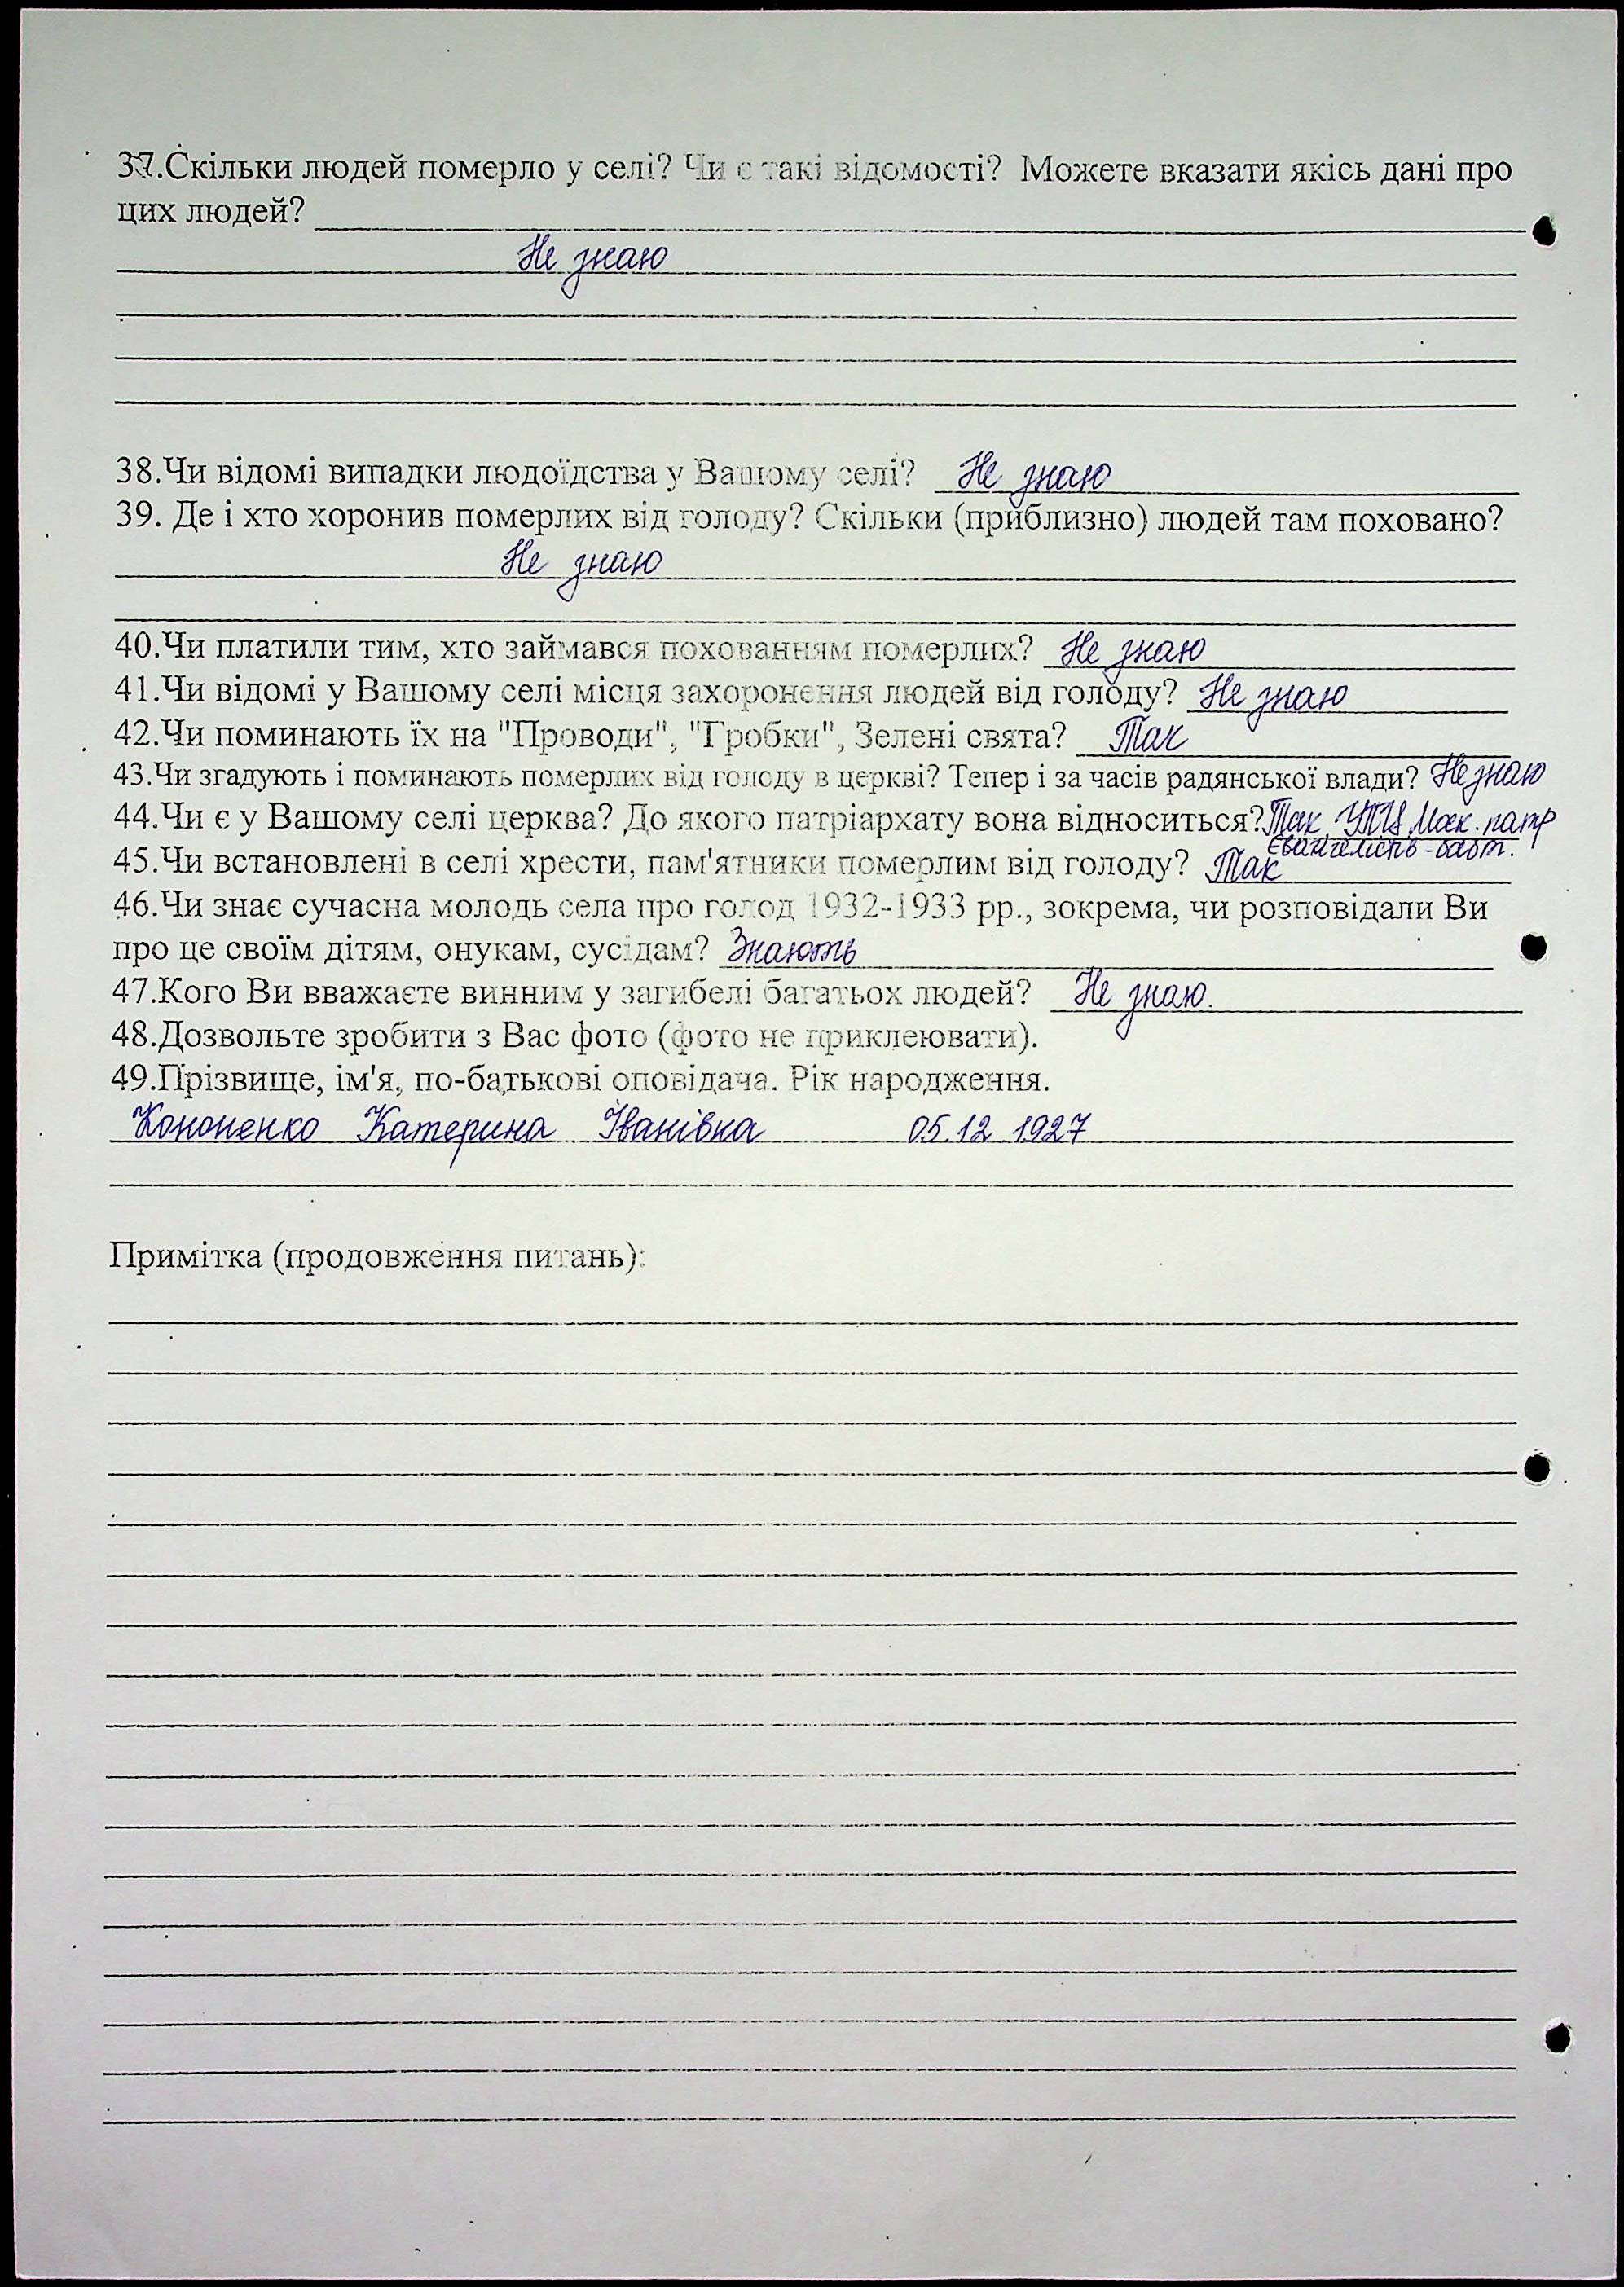 37.Скільки людей померло у селі? Чи є такі відомості? Можете вказати якісь дані про
цих людей?
Не знаю
38.Чи відомі випадки людоїдства у Вашому селі? Не знаю
39. Де і хто хоронив померлих від голоду? Скільки (приблизно) людей там поховано?
Не знаю
40.Чи платили тим, хто займався похованням померлих? Не знаю
41.Чи відомі у Вашому селі місця захоронення людей від голоду? Не знаю
42.Чи поминають їх на "Проводи", "Гробки", Зелені свята? Так
43.Чи згадують і поминають померлих від голоду в церкві? Тепер і за часів радянської влади? Не знаю
44.Чи є у Вашому селі церква? До якого патріархату вона відноситься? Так, УПЦ Моск. патр
Євангелістів-бапт.
45.Чи встановлені в селі хрести, пам'ятники померлим від голоду? Так
46.Чи знає сучасна молодь села про голод 1932-1933 рр., зокрема, чи розповідали Ви
про це своїм дітям, онукам, сусідам? Знають
47.Кого Ви вважаєте винним у загибелі багатьох людей? Не знаю.
48.Дозвольте зробити з Вас фото (фото не приклеювати).
49.Прізвище, ім'я, по-батькові оповідача. Рік народження.
Кононенко Катерина Іванівна 05.12 1927
Примітка (продовження питань):